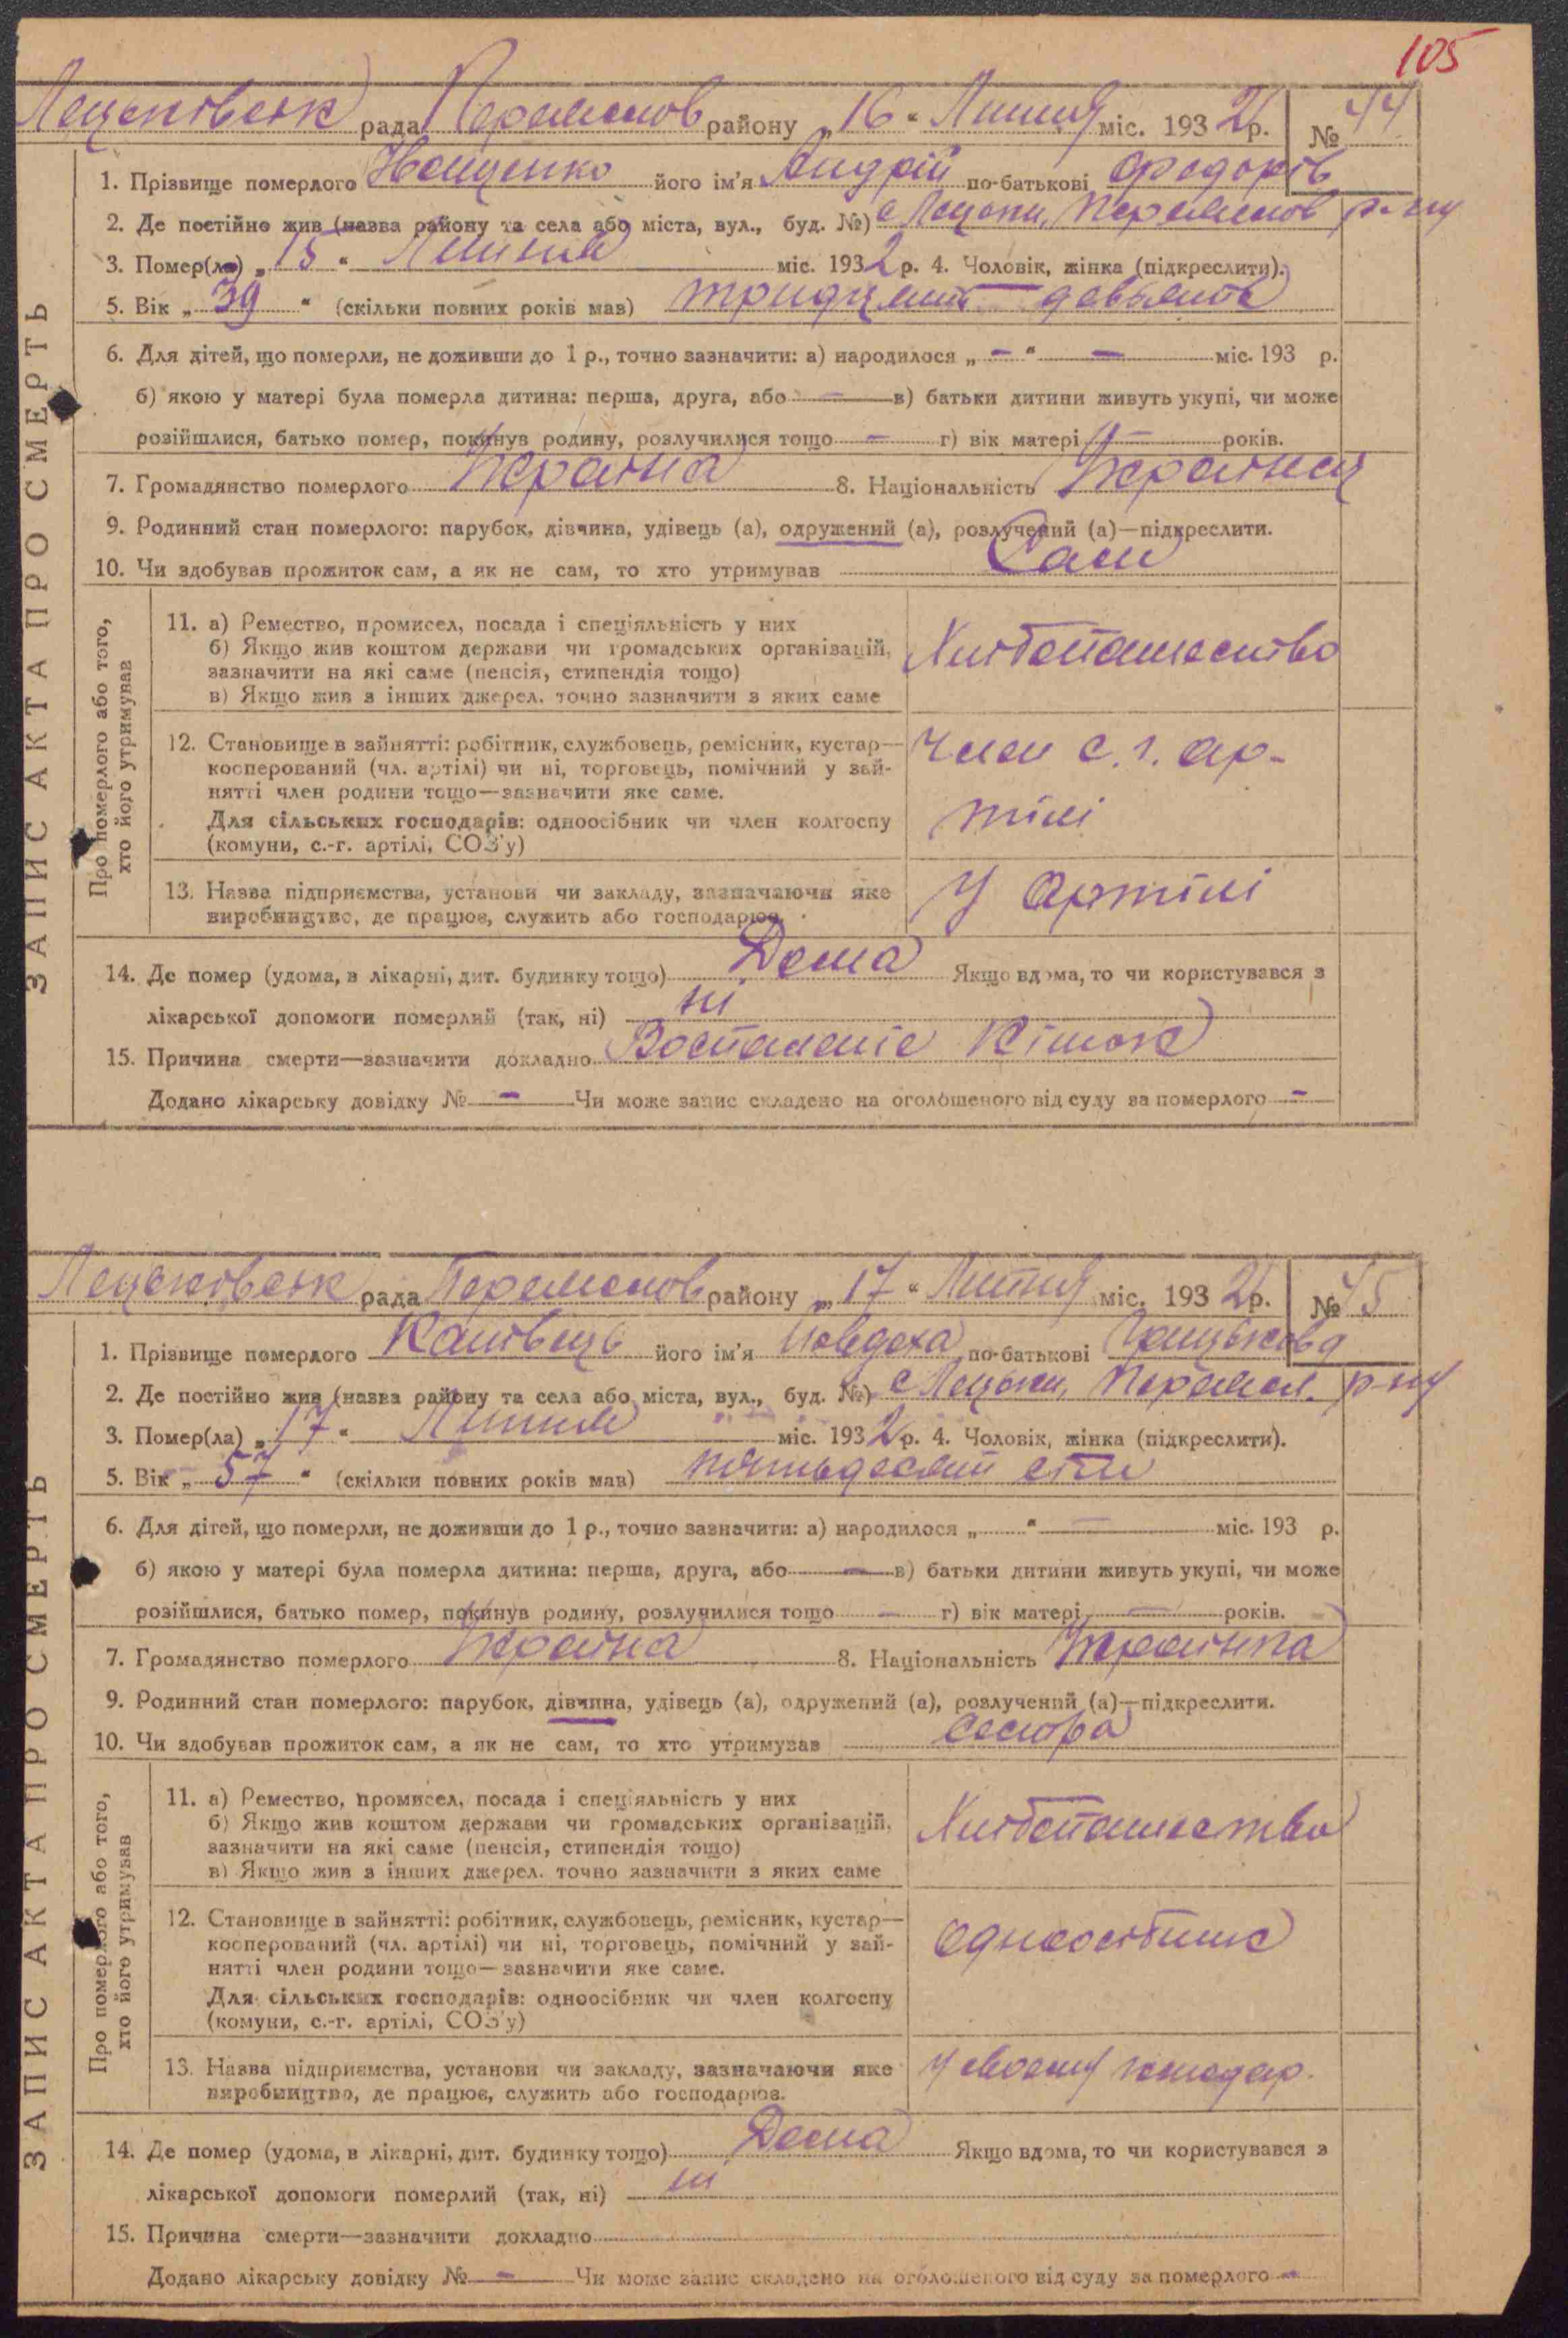 105
рада района „16“ Липня міс. 1932 р. № 44
1. Прізвище померлого його ім'я Андрій по-батькові Федорків
2. Де постійно жив (назва району та села або міста, вул., буд. №) с р-ну
3. Помер(ла) „15“ Липня міс. 1932 р. 4. Чоловік, жінка (підкреслити).
5. Вік „39“ (скільки повних років мав) тридцять девьять
6. Для дітей, що померли, не доживши до 1 р., точно зазначити: а) народилося „ – “ – міс. 193 р.
б) якою у матері була померла дитина: перша, друга, або – в) батьки дитини живуть укупі, чи може
розійшлися, батько помер, покинув родину, розлучилися тощо – г) вік матері – років.
7. Громадянство померлого Україна 8. Національність
9. Родинний стан померлого: парубок, дівчина, удівець (а), одружений (а), розлучений (а)—підкреслити.
10. Чи здобував прожиток сам, а як не сам, то хто утримував Сам
ЗАПИС АКТА ПРО СМЕРТЬ
Про померлого або того,
хто його утримував
11. а) Ремество, промисел, посада і спеціяльність у них
б) Якщо жив коштом держави чи громадських організацій,
зазначити на які саме (пенсія, стипендія тощо)
в) Якщо жив з інших джерел, точно зазначити з яких саме
Хлібопашество
12. Становище в зайнятті: робітник, службовець, ремісник, кустар—
кооперований (чл. артілі) чи ні, торговець, помічний у зай-
нятті член родини тощо—зазначити яке саме.
Для сільських господарів: одноосібник чи член колгоспу
(комуни, с.-г. артілі, СОЗ'у)
член с. г. ар-
тілі
13. Назва підприємства, установи чи закладу, зазначаючи яке
виробництво, де працює, служить або господарює.
У артілі
14. Де помер (удома, в лікарні, дит. будинку тощо) Дома Якщо вдома, то чи користувався з
лікарської допомоги померлий (так, ні) ні
15. Причина смерти—зазначити докладно Воспаленіе Кішок
Додано лікарську довідку № – Чи може запис складено на оголошеного від суду за померлого –
рада району „17“ Липня міс. 1932 р. № 45
1. Прізвище померлого його ім'я по-батькові
2. Де постійно жив (назва району та села або міста, вул., буд. №) с р-ну
3. Помер(ла) „17“ Липня міс. 1932 р. 4. Чоловік, жінка (підкреслити).
5. Вік „57“ (скільки повних років мав) пятьдесят сім
6. Для дітей, що померли, не доживши до 1 р., точно зазначити: а) народилося „ “ – міс. 193 р.
б) якою у матері була померла дитина: перша, друга, або – в) батьки дитини живуть укупі, чи може
розійшлися, батько помер, покинув родину, розлучилися тощо – г) вік матері – років.
7. Громадянство померлого Україна 8. Національність
9. Родинний стан померлого: парубок, дівчина, удівець (а), одружений (а), розлучений (а)—підкреслити.
10. Чи здобував прожиток сам, а як не сам, то хто утримував сестра
ЗАПИС АКТА ПРО СМЕРТЬ
Про померлого або того,
хто його утримував
11. а) Ремество, промисел, посада і спеціяльність у них
б) Якщо жив коштом держави чи громадських організацій,
зазначити на які саме (пенсія, стипендія тощо)
в) Якщо жив з інших джерел, точно зазначити з яких саме
Хлібопашество
12. Становище в зайнятті: робітник, службовець, ремісник, кустар—
кооперований (чл. артілі) чи ні, торговець, помічний у зай-
нятті член родини тощо—зазначити яке саме.
Для сільських господарів: одноосібник чи член колгоспу
(комуни, с.-г. артілі, СОЗ'у)
одноосібник
13. Назва підприємства, установи чи закладу, зазначаючи яке
виробництво, де працює, служить або господарює.
у своему господар.
14. Де помер (удома, в лікарні, дит. будинку тощо) Дома Якщо вдома, то чи користувався з
лікарської допомоги померлий (так, ні) ні
15. Причина смерти—зазначити докладно
Додано лікарську довідку № – Чи може запис складено на оголошеного від суду за померлого –